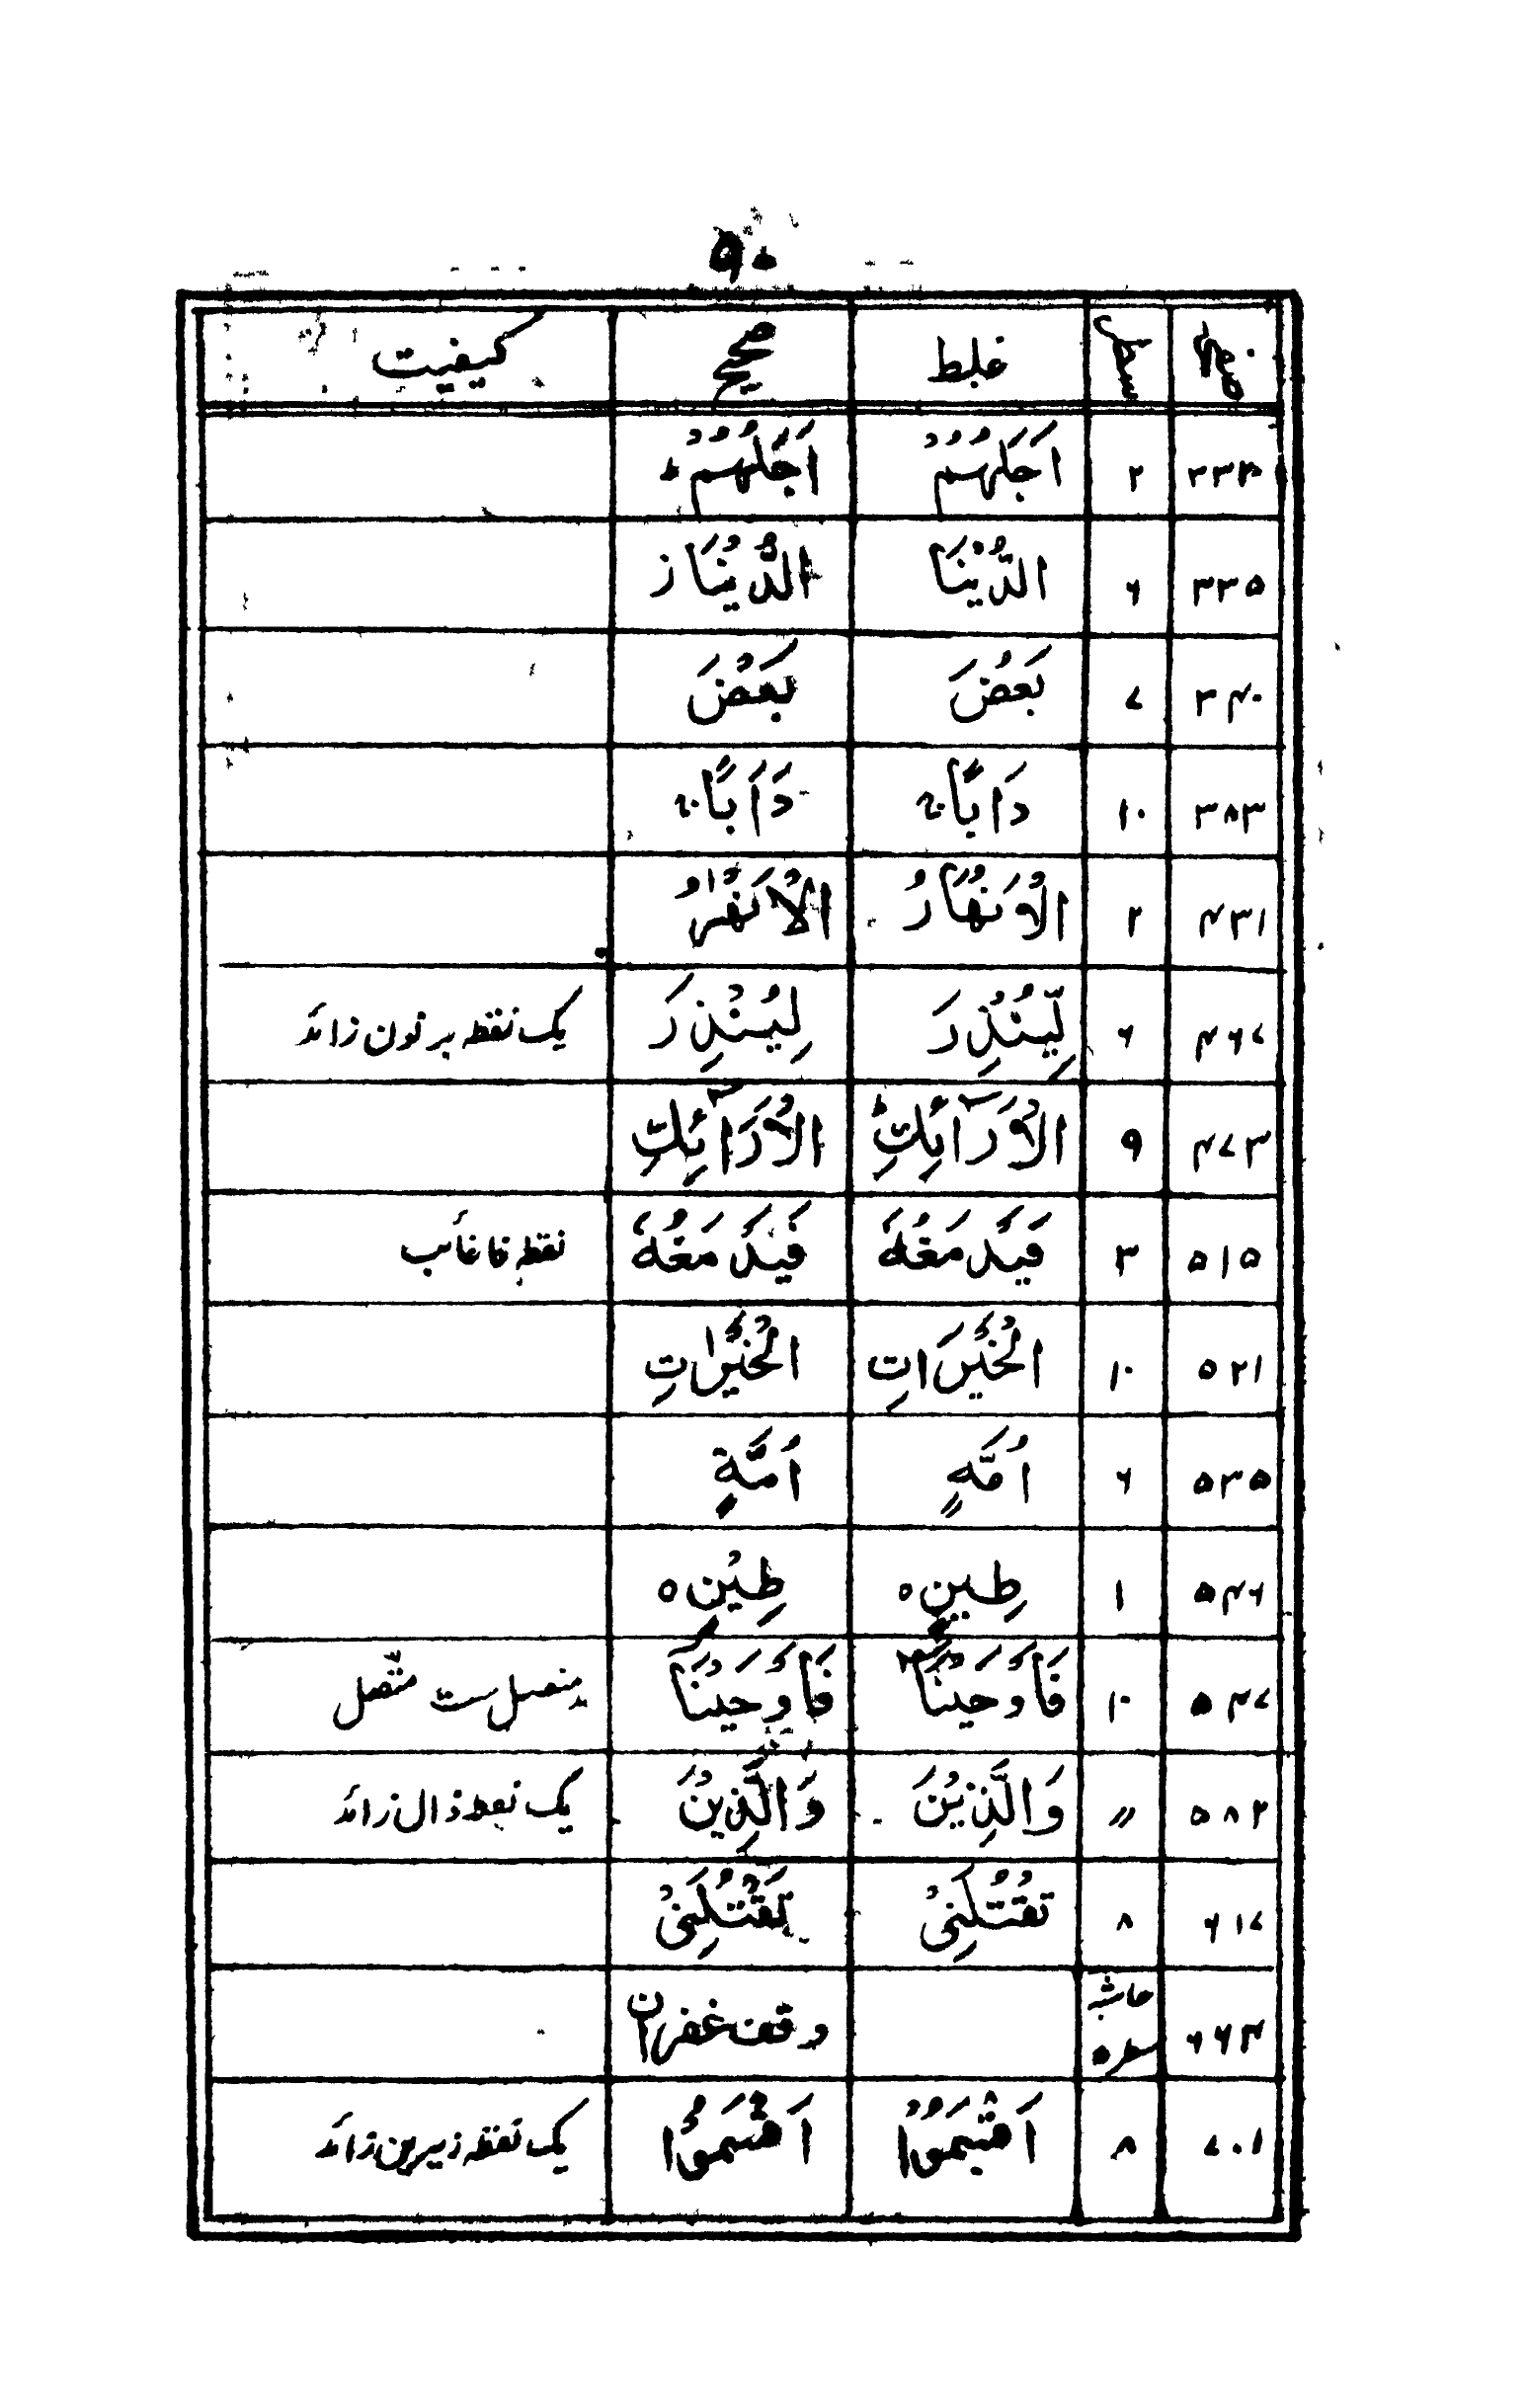 ۹۰
صفحہ سطر غلط صحیح کیفیت
۳۳۴ ۲ اَجَلُهُمْ اَجَلُهُمْ ؕ
۳۳۵ ۶ الدُّنْيَا الدُّنْيَا ز
۳۴۰ ۷ بَعْضَ بَعْضَ
۳۸۳ ۱۰ دَابًا دَاَبًا
۴۳۱ ۲ الْاَنْهَارُ الْاَنْهٰرُ
۴۶۷ ۶ لِّيُنْذِرَ لِيُنْذِرَ یک نقطہ بر نون زائد
۴۷۳ ۹ الْاَرَآئِكِ الْاَرَآئِكِ
۵۱۵ ۳ فَيَدْمَغُهٗ فَيَدْمَغُهٗ نقطہ فا غائب
۵۲۱ ۱۰ الْخَيْرَاتِ الْخَيْرٰتِ
۵۳۵ ۶ اُمَّهٍ اُمَّةٍ
۵۴۶ ۱ طِينٍ ه طِيْنٍ ه
۵۴۷ ۱۰ فَاَوْحَيْنَآ فَاَوْحَيْنَآ منفصل ست متصل
۵۸۲ 〃 وَالَّذِيْنَ وَالَّذِيْنَ یک نقطہ ذال زائد
۶۱۷ ۸ تَقْتُلَنِيْ تَقْتُلَنِيْ
۶۶۴ حاشیہ سطر ۵ وقف غفران
۷۰۱ ۸ اَقِيْمُوا اَقِيْمُوا یک نقطہ زیرین زائد